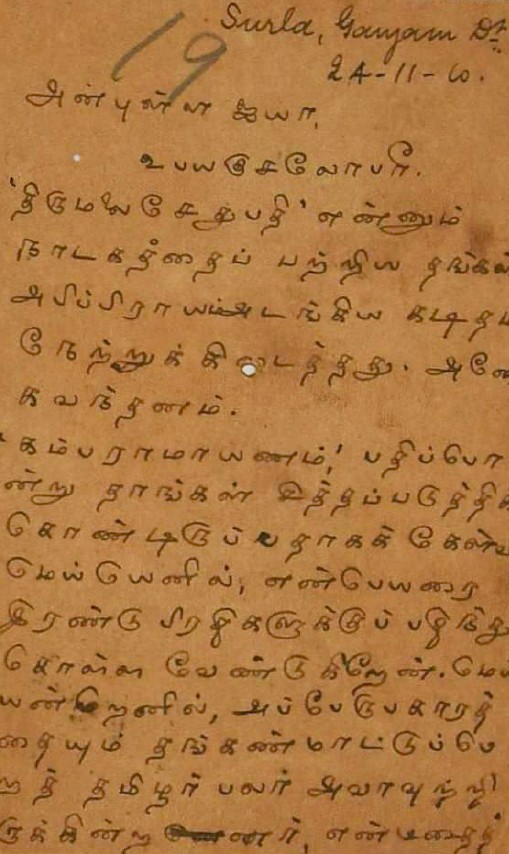 19
Surla, Ganjam Dt.
24-11-10.
அன்புள்ள ஐயா,
உபயகுசலோபரி.
'திருமலைசேதுபதி' என்னும்
நாடகத்தைப் பற்றிய தங்கள்
அபிப்பிராயம்அடங்கிய கடித
நேற்றுக் கிடைத்தது. அனே
கவந்தனம்.
'கம்பராமாயணம்,' பதிப்பொ
ன்று தாங்கள் சித்தப்படுத்திக்
கொண்டிருப்பதாகக் கேள்வ
மெய்யெனில், என்பெயரை
இரண்டு பிரதிகளுக்குப் பதிந்து
கொள்ள வேண்டுகிறேன். மெய்
யன்றெனில், அப்பேருபகாரத்
தையும் தங்கண்மாட்டுப்பெ
றத் தமிழர் பலர் அவாவுற்றி
ருக்கின்றனர், என்பதைத்